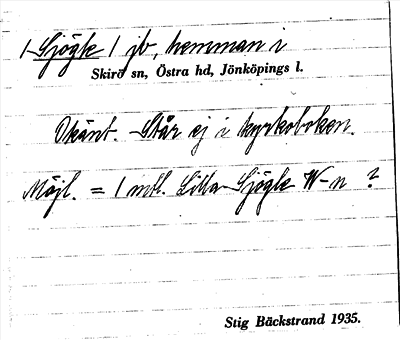 1 Sjögle 1 jb, hemman i
Skirö sn, Östra hd, Jönköpings l.
Okänt. Står ej i kyrkoboken.
Möjl. = 1 mtl. Lilla Sjögle W-n ?
Stig Bäckstrand 1935.